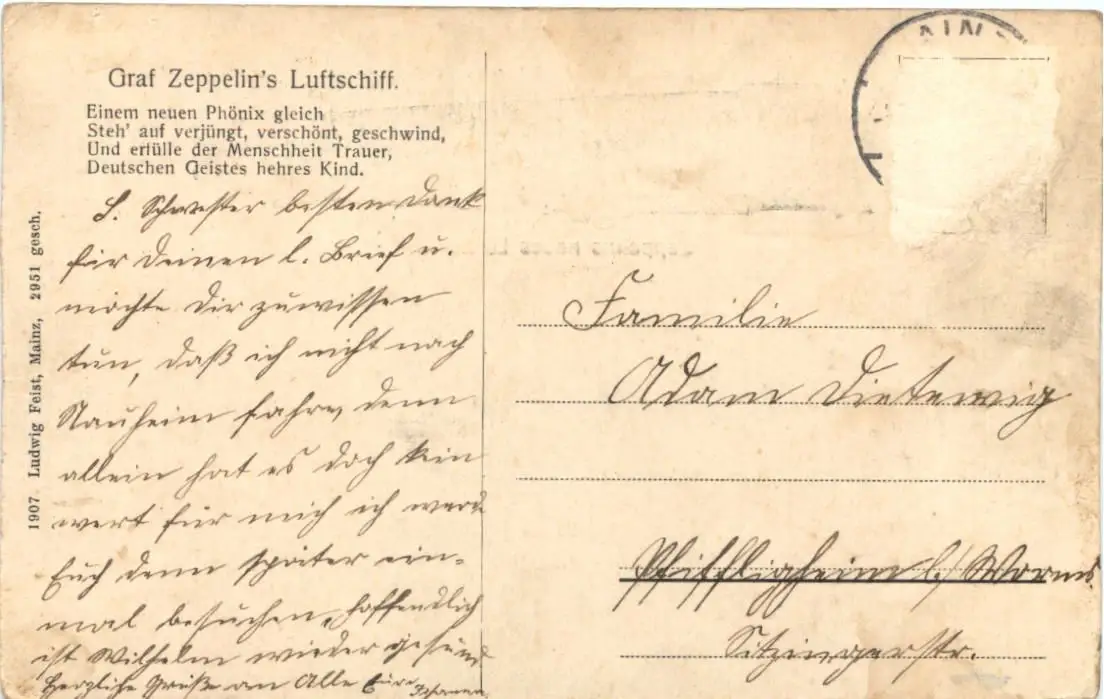 Graf Zeppelin's Luftschiff.
Einem neuen Phönix gleich
Steh' auf verjüngt, verschönt, geschwind,
Und erfülle der Menschheit Trauer,
Deutschen Geistes hehres Kind.
L. Schwester besten Dank
für Deinen l. Brief u.
möchte Dir zuwissen
tun, daß ich nicht nach
Nauheim fahre, denn
allein hat es doch kein
wert für mich ich werde
Euch denn später ein-
mal besuchen, hoffendlich
ist Wilhelm wieder gesund
Herzliche Grüße an Alle Eure
1907 Ludwig Feist, Mainz, 2951 gesch.
Familie
Adam
Pfiffligheim b/ Worms